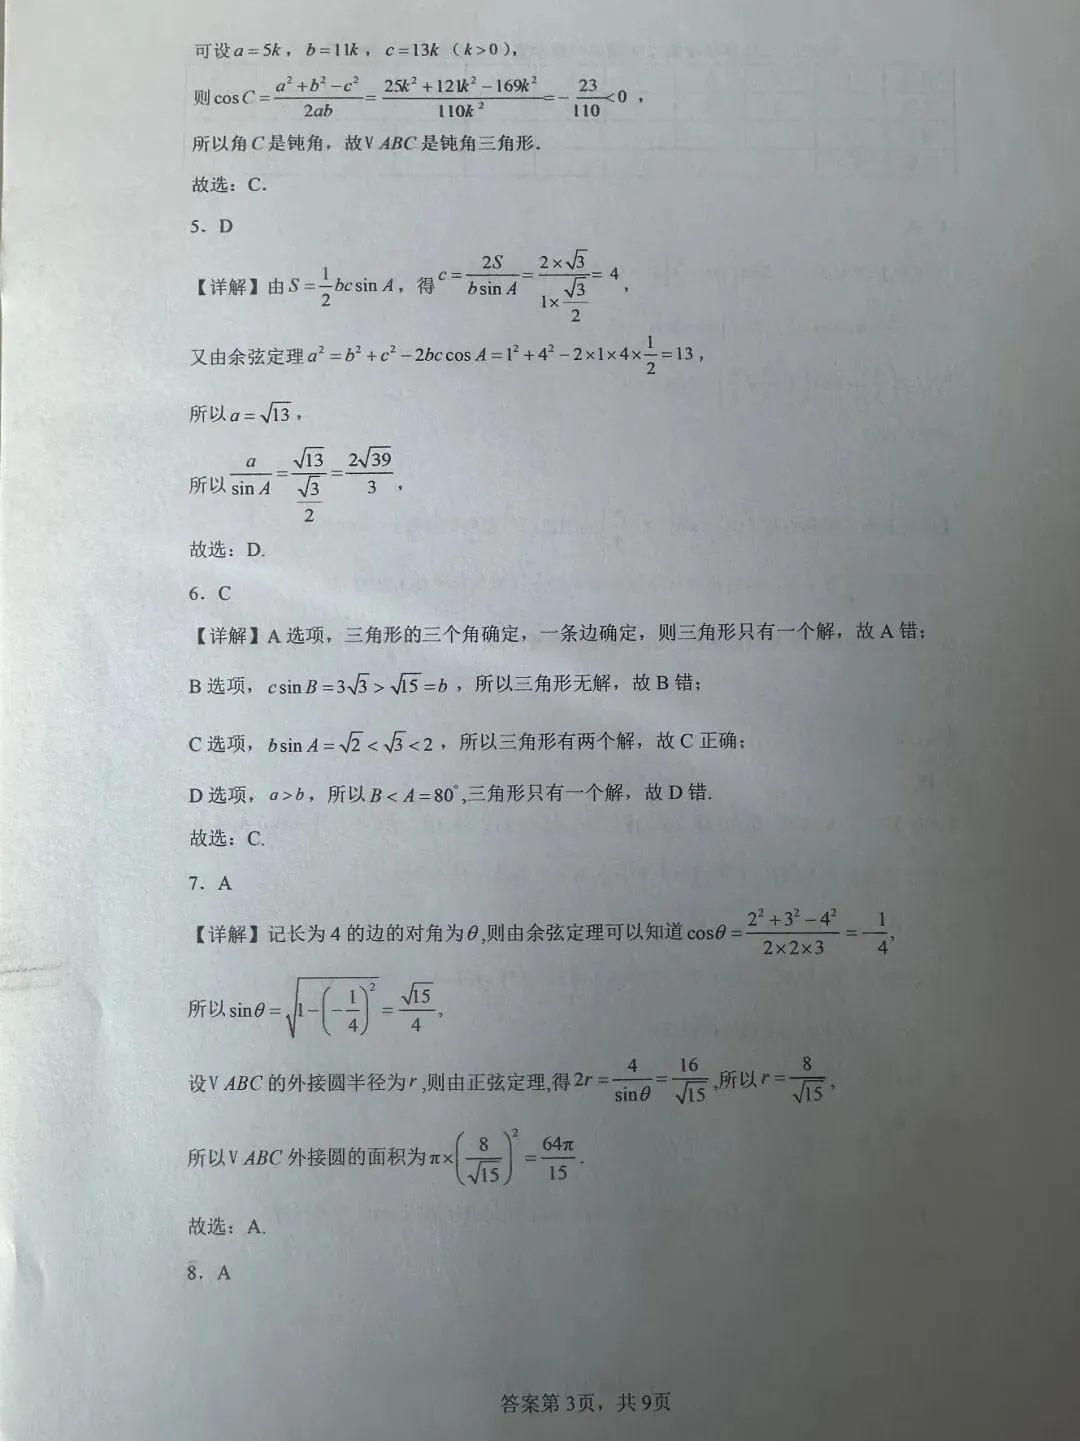 可设a=5k，b=11k，c=13k（k>0），
则cosC=\frac{a²+b²-c²}{2ab}=\frac{25k²+121k²-169k²}{110k²}=-\frac{23}{110}<0，
所以角C是钝角，故V ABC是钝角三角形．
故选：C．
5．D
【详解】由S=\frac{1}{2}bcsinA，得c=\frac{2S}{bsinA}=\frac{2×√3}{1×\frac{√3}{2}}=4，
又由余弦定理a²=b²+c²-2bccosA=1²+4²-2×1×4×\frac{1}{2}=13，
所以a=√13，
所以\frac{a}{sinA}=\frac{√13}{\frac{√3}{2}}=\frac{2√39}{3}，
故选：D.
6．C
【详解】A选项，三角形的三个角确定，一条边确定，则三角形只有一个解，故A错；
B选项，csinB=3√3>√15=b，所以三角形无解，故B错；
C选项，bsinA=√2<√3<2，所以三角形有两个解，故C正确；
D选项，a>b，所以B<A=80°,三角形只有一个解，故D错.
故选：C.
7．A
【详解】记长为4的边的对角为θ,则由余弦定理可以知道cosθ=\frac{2²+3²-4²}{2×2×3}=-\frac{1}{4},
所以sinθ=√{1-(-\frac{1}{4})²}=\frac{√15}{4},
设V ABC的外接圆半径为r,则由正弦定理,得2r=\frac{4}{sinθ}=\frac{16}{√15},所以r=\frac{8}{√15},
所以V ABC外接圆的面积为π×(\frac{8}{√15})²=\frac{64π}{15}.
故选：A.
8．A
答案第3页，共9页